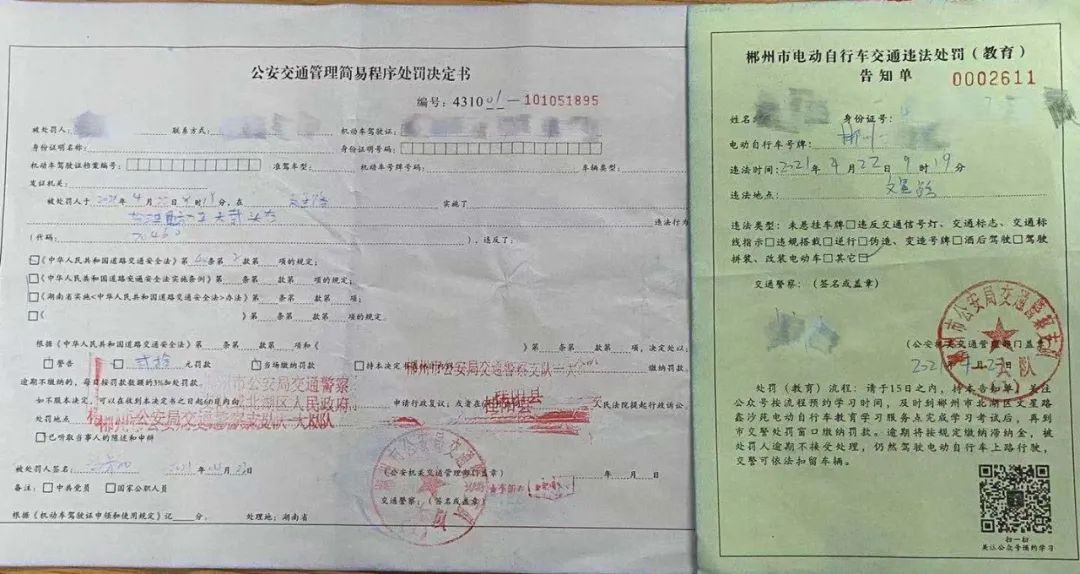 公安交通管理简易程序处罚决定书
编号：43101-101051895
被处罚人： 联系方式： 机动车驾驶证：
身份证明名称： 身份证明号码：
机动车驾驶证档案编号： 准驾车型： 机动车号牌号码： 车辆类型：
发证机关：
被处罚人于2021年4月22日9时19分，在 实施了
违法行为
（代码： ），违反了：
《中华人民共和国道路交通安全法》第 条第 款第 项的规定；
《中华人民共和国道路交通安全法实施条例》第 条第 款第 项的规定；
《湖南省实施<中华人民共和国道路交通安全法>办法》第 条第 款第 项；
《 》第 条第 款第 项的规定。
根据《中华人民共和国道路交通安全法》第 条第 款第 项和《 》第 条第 款第 项的规定，决定处以：
警告 贰拾 元罚款 当场缴纳罚款 持本决定 缴纳罚款。
逾期不缴纳的，每日按罚款数额的3%加处罚款。
如不服本决定，可以在收到本决定书之日起60日内向 申请行政复议；或者在 人民法院提起行政诉讼。
郴州市公安局交通警察支队一大队
郴州市公安局交通警察
北湖区人民政府
桂阳县
处罚地点
郴州市公安局交通警察支队一大队
已听取当事人的陈述和申辩
被处罚人签名： 2021年04月22日
（公安机关交通管理部门盖章） 年 月 日
备注： 中共党员 国家公职人员
交通警察：（签名或盖章）
根据《机动车驾驶证申领和使用规定》记 分， 处理地：湖南省
郴州市电动自行车交通违法处罚（教育）
告知单
0002611
姓名： 身份证号：
电动自行车号牌：郴州
违法时间：2021年4月22日9时19分
违法地点：文星路
违法类型：未悬挂车牌□违反交通信号灯、交通标志、交通标
线指示□违规搭载□逆行□伪造、变造号牌□酒后驾驶□驾驶
拼装、改装电动车□其它□
交通警察：（签名或盖章）
（公安机关交通管理部门盖章）
2021年4月22日
市公安局交通警察支队
大队
处罚（教育）流程：请于15日之内，持本告知单，关注
公众号按流程预约学习时间，及时到郴州市北湖区文星路
鑫沙苑电动自行车教育学习服务点完成学习考试后，再到
市交警处罚窗口缴纳罚款。逾期将按规定缴纳滞纳金，被
处罚人逾期不接受处理，仍然驾驶电动自行车上路行驶，
交警可依法扣留车辆。
扫一扫
关注公众号预约学习